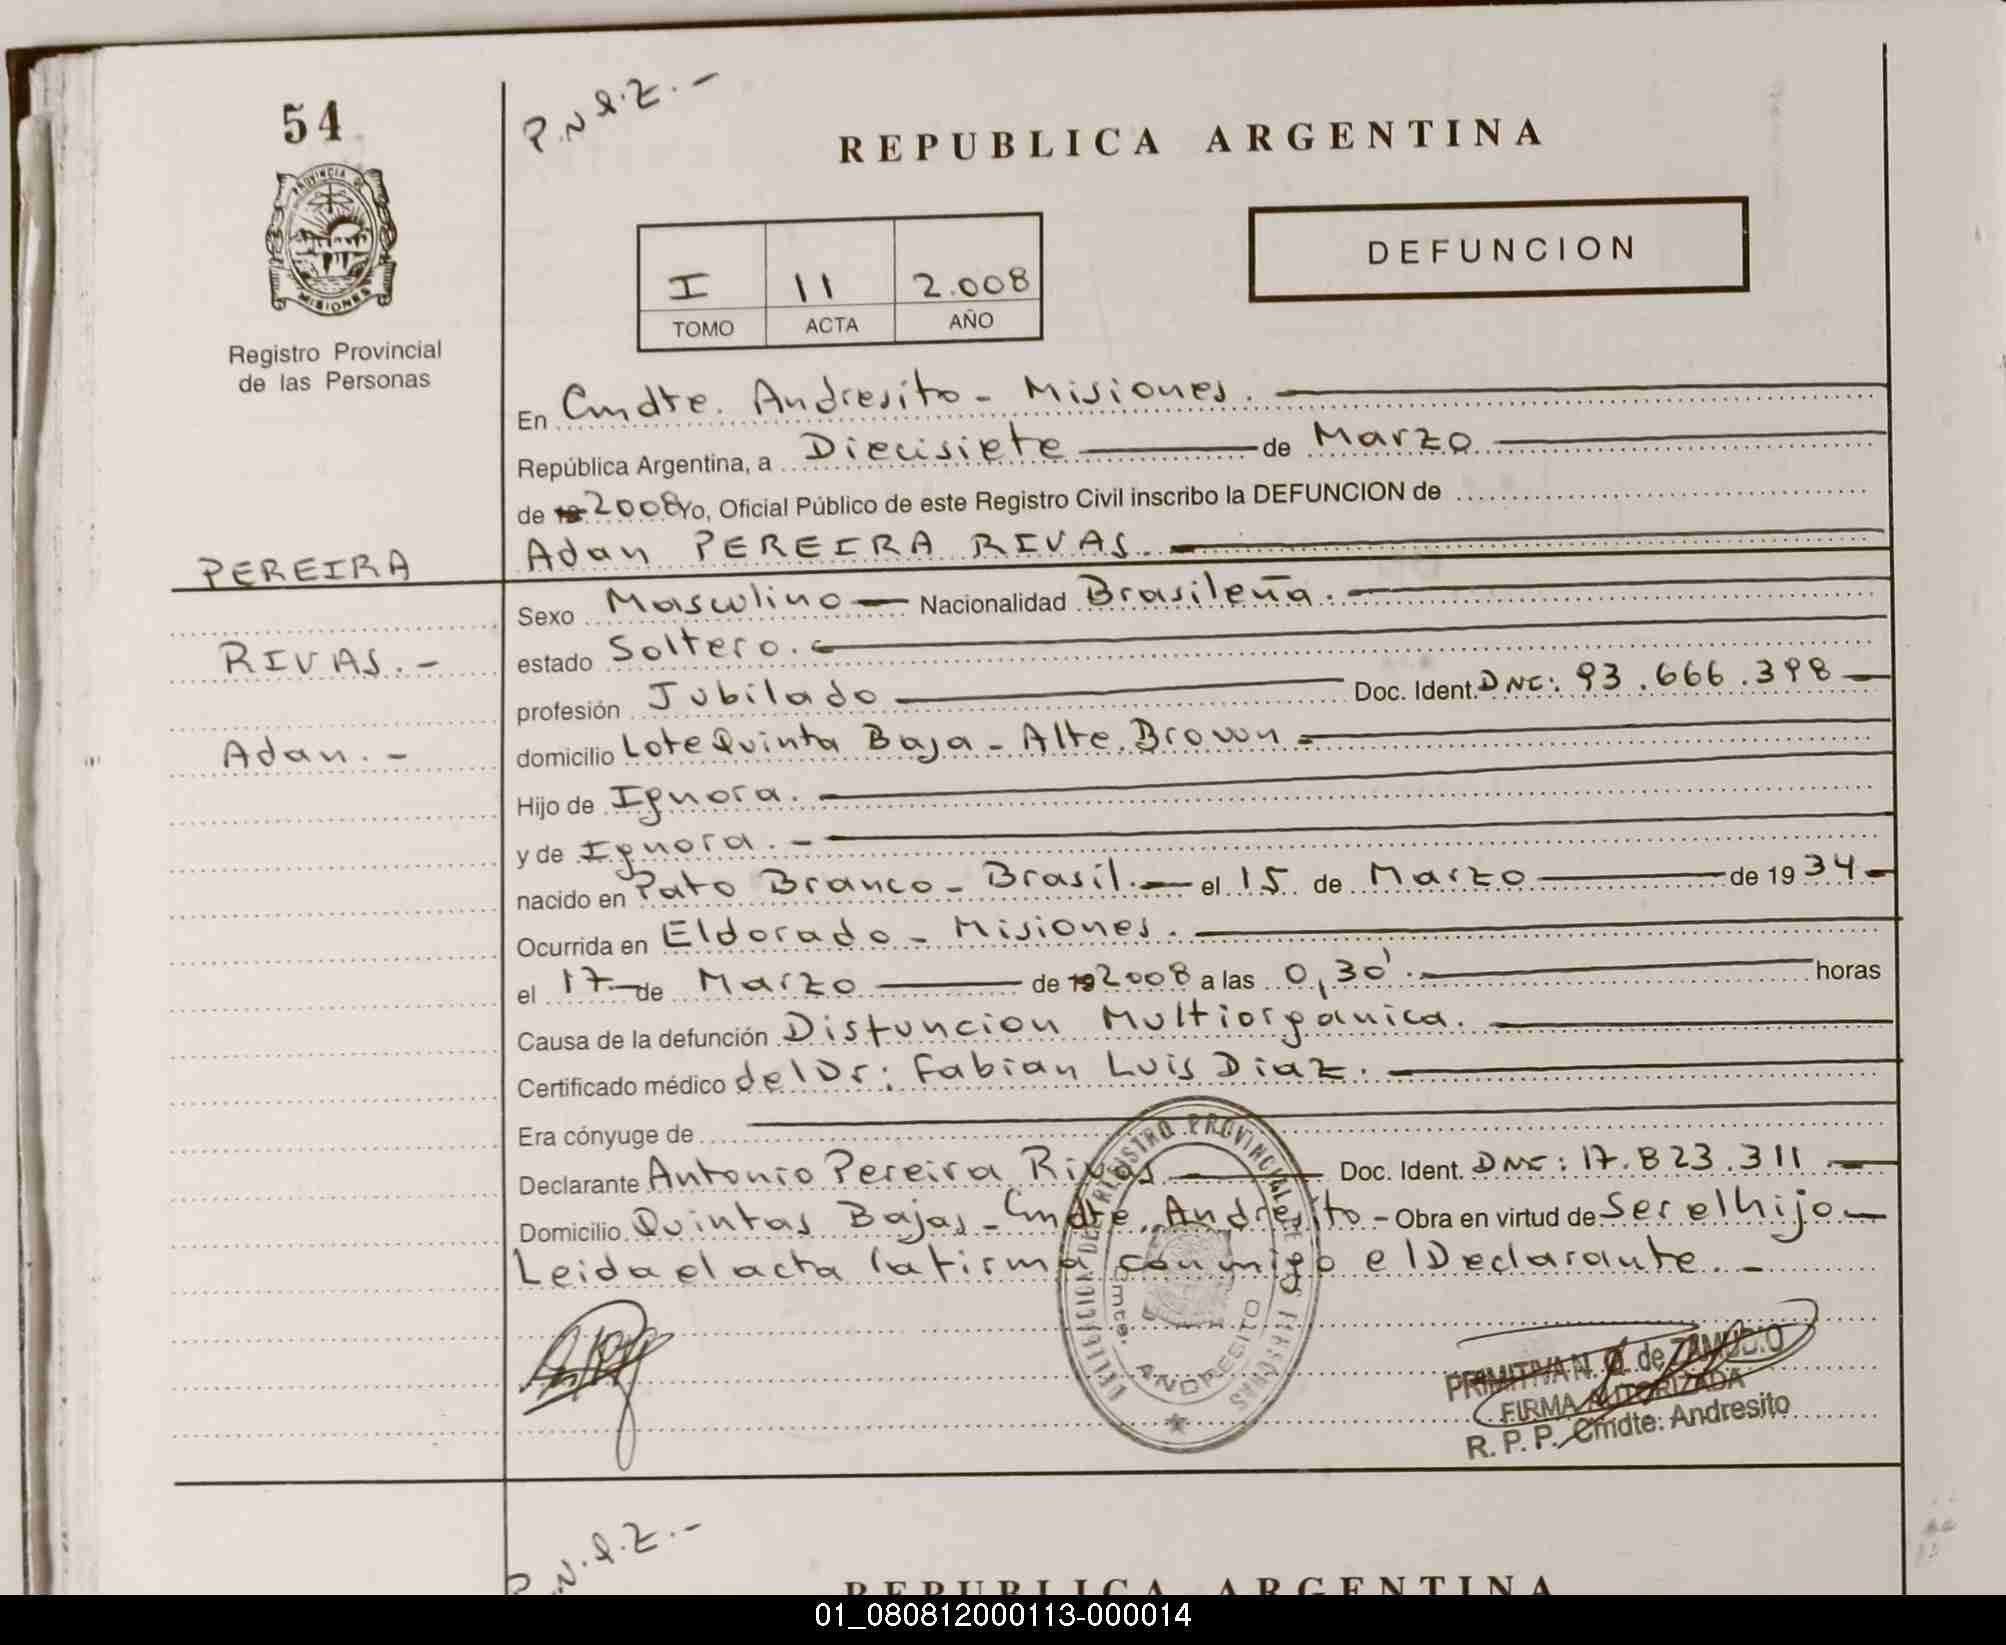 54
P.N.d.Z.-
REPUBLICA ARGENTINA
PROVINCIA DE
MISIONES
Registro Provincial
de las Personas
I 11 2.008
TOMO ACTA AÑO
DEFUNCION
En Cmdte. Andresito - Misiones.
República Argentina, a Diecisiete de Marzo
de 19 2008 Yo, Oficial Público de este Registro Civil inscribo la DEFUNCION de
Adan PEREIRA RIVAS.
PEREIRA
RIVAS.-
Adan.-
Sexo Masculino Nacionalidad Brasileña.
estado Soltero.
profesión Jubilado Doc. Ident. DNI: 93.666.398
domicilio Lote Quinta Baja - Alte. Brown
Hijo de Ignora.
y de Ignora.-
nacido en Pato Branco - Brasil. el 15 de Marzo de 1934
Ocurrida en Eldorado - Misiones.
el 17 de Marzo de 19 2008 a las 0,30' horas
Causa de la defunción Disfuncion Multiorganica.
Certificado médico del Dr: Fabian Luis Diaz.
Era cónyuge de
Declarante Antonio Pereira Rivas Doc. Ident. DNI: 17.823.311
Domicilio Quintas Bajas - Cmdte. Andresito - Obra en virtud de Ser el hijo
Leida el acta la firma conmigo el Declarante.-
DELEGACION DEL REGISTRO PROVINCIAL DE LAS PERSONAS
Cmte. ANDRESITO
PRIMITIVA N. de ZAMUDIO
FIRMA AUTORIZADA
R. P. P. Cmdte: Andresito
P.N.d.Z.-
REPUBLICA ARGENTINA
01_080812000113-000014